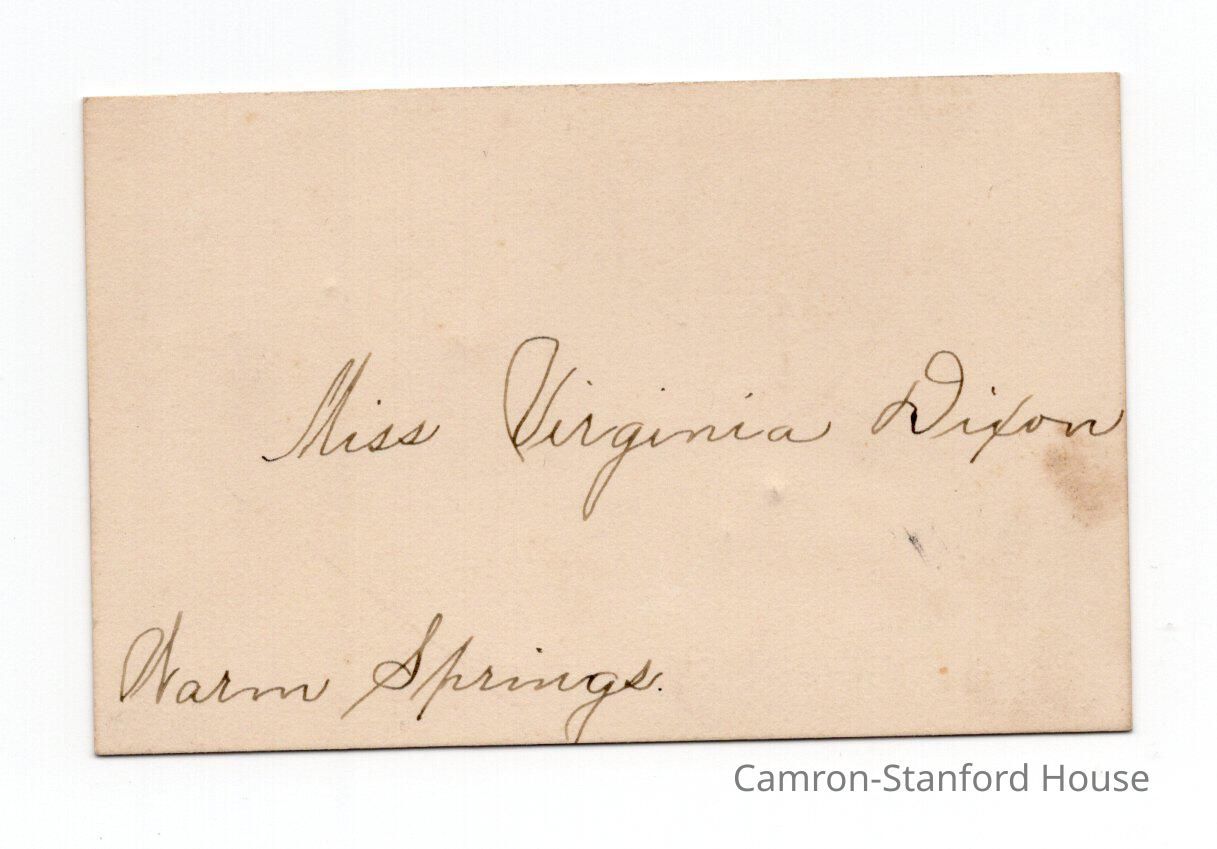 Miss Virginia Dixon
Warm Springs.
Camron-Stanford House